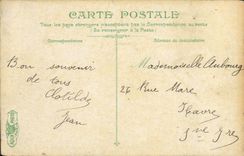 CARTE POSTALE
Tous les pays étrangers n'acceptent pas la Correspondance au recto
(Se renseigner à la Poste)
Correspondance
Adresse du destinataire
Bon souvenir
de tous
Clotilde
Jean
Mademoiselle Aubourg
26 Rue Mare
Havre
Sne Fre